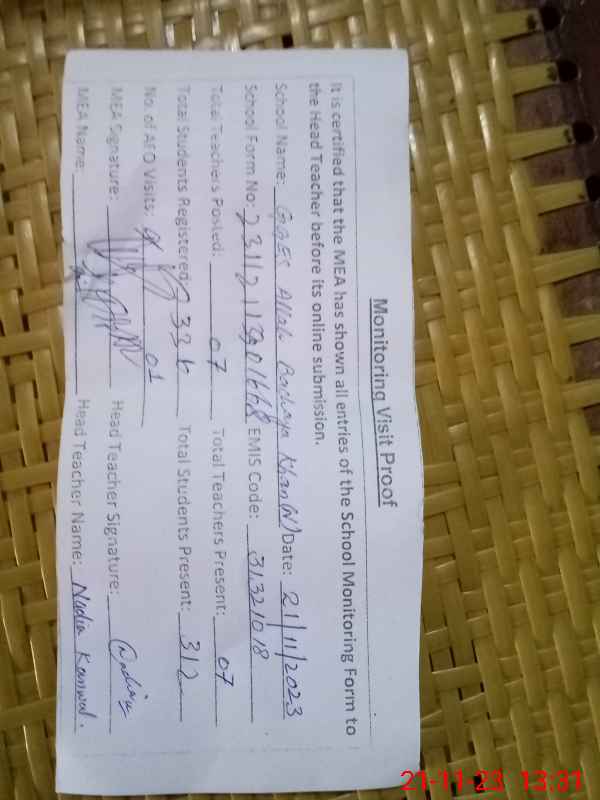 Monitoring Visit Proof
It is certified that the MEA has shown all entries of the School Monitoring Form to
the Head Teacher before its online submission.
School Name: Allah Bachaya Khan (W) Date: 21/11/2023
School Form No: EMIS Code: 31321018
Total Teachers Posted: 07 Total Teachers Present: 07
Total Students Registered: 336 Total Students Present: 312
No. of AEO Visits: 01
MEA Signature: Head Teacher Signature: Nadia
MEA Name: Head Teacher Name: Nadia Kanwal.
21-11-23 13:31